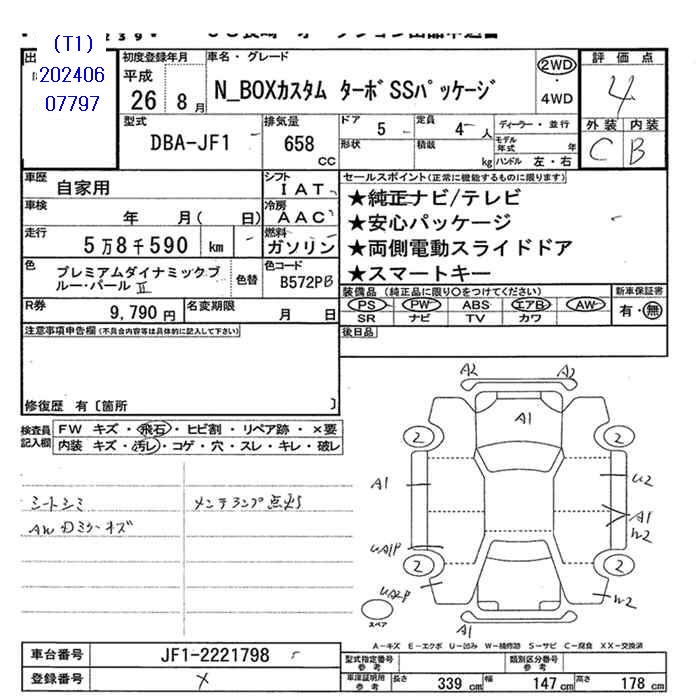 (T1)
202406
07797
初度登録年月
平成
26年8月
車名・グレード
N_BOXカスタム ターボSSパッケージ
2WD
・
4WD
評価点
4
外装 内装
C B
型式
DBA-JF1
排気量
658
CC
ドア
5
定員
4 人
形状
積載
kg
ディーラー・並行
モデル年式
年
ハンドル 左・右
車歴
自家用
シフト
IAT
セールスポイント(正常に機能するものに限ります)
★純正ナビ/テレビ
★安心パッケージ
★両側電動スライドドア
★スマートキー
車検
年 月( 日)
冷房
AAC
走行
5万8千590 km
燃料
ガソリン
色
プレミアムダイナミックブ
ルー・パールⅡ
色替
色コード
B572PB
装備品(純正品に限り○をつけてください)
PS PW ABS エアB AW
SR ナビ TV カワ
新車保証書
有・無
R券
9,790円
名変期限
月 日
後日品
注意事項申告欄(不具合内容等は具体的に記入して下さい)
修復歴 有〔箇所 〕
検査員
記入欄
FW キズ・飛石・ヒビ割・リペア跡・×要
内装 キズ・汚レ・コゲ・穴・スレ・キレ・破レ
シートシミ
メンテランプ点灯
AW Dミラーキズ
A2 A2
A1
2 2
A1
U2
A1
W2
UA1P
2 2
UA2P
W2
スペア
A1
A-キズ E-エクボ U-凹み W-補修跡 S-サビ C-腐食 XX-交換済
車台番号
JF1-2221798
登録番号
×
型式指定番号
参考
類別区分番号
参考
車庫証明用
参考
長さ
339 cm
幅
147 cm
高さ
178 cm